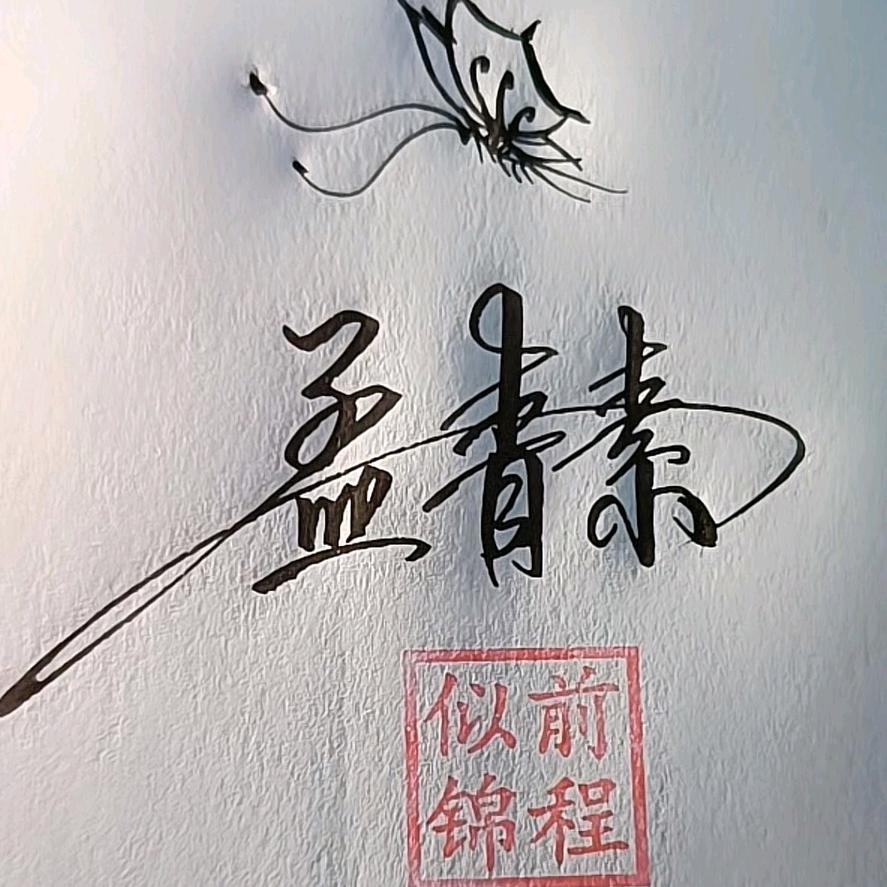 孟青素
前程
似锦